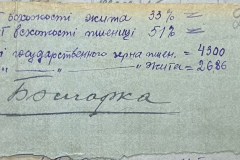 Т всхожості жита 33% =
Т всхожості пшениці 51% =
і государственного зерна пшен. = 4300
" " " жита = 2686
Болгарка